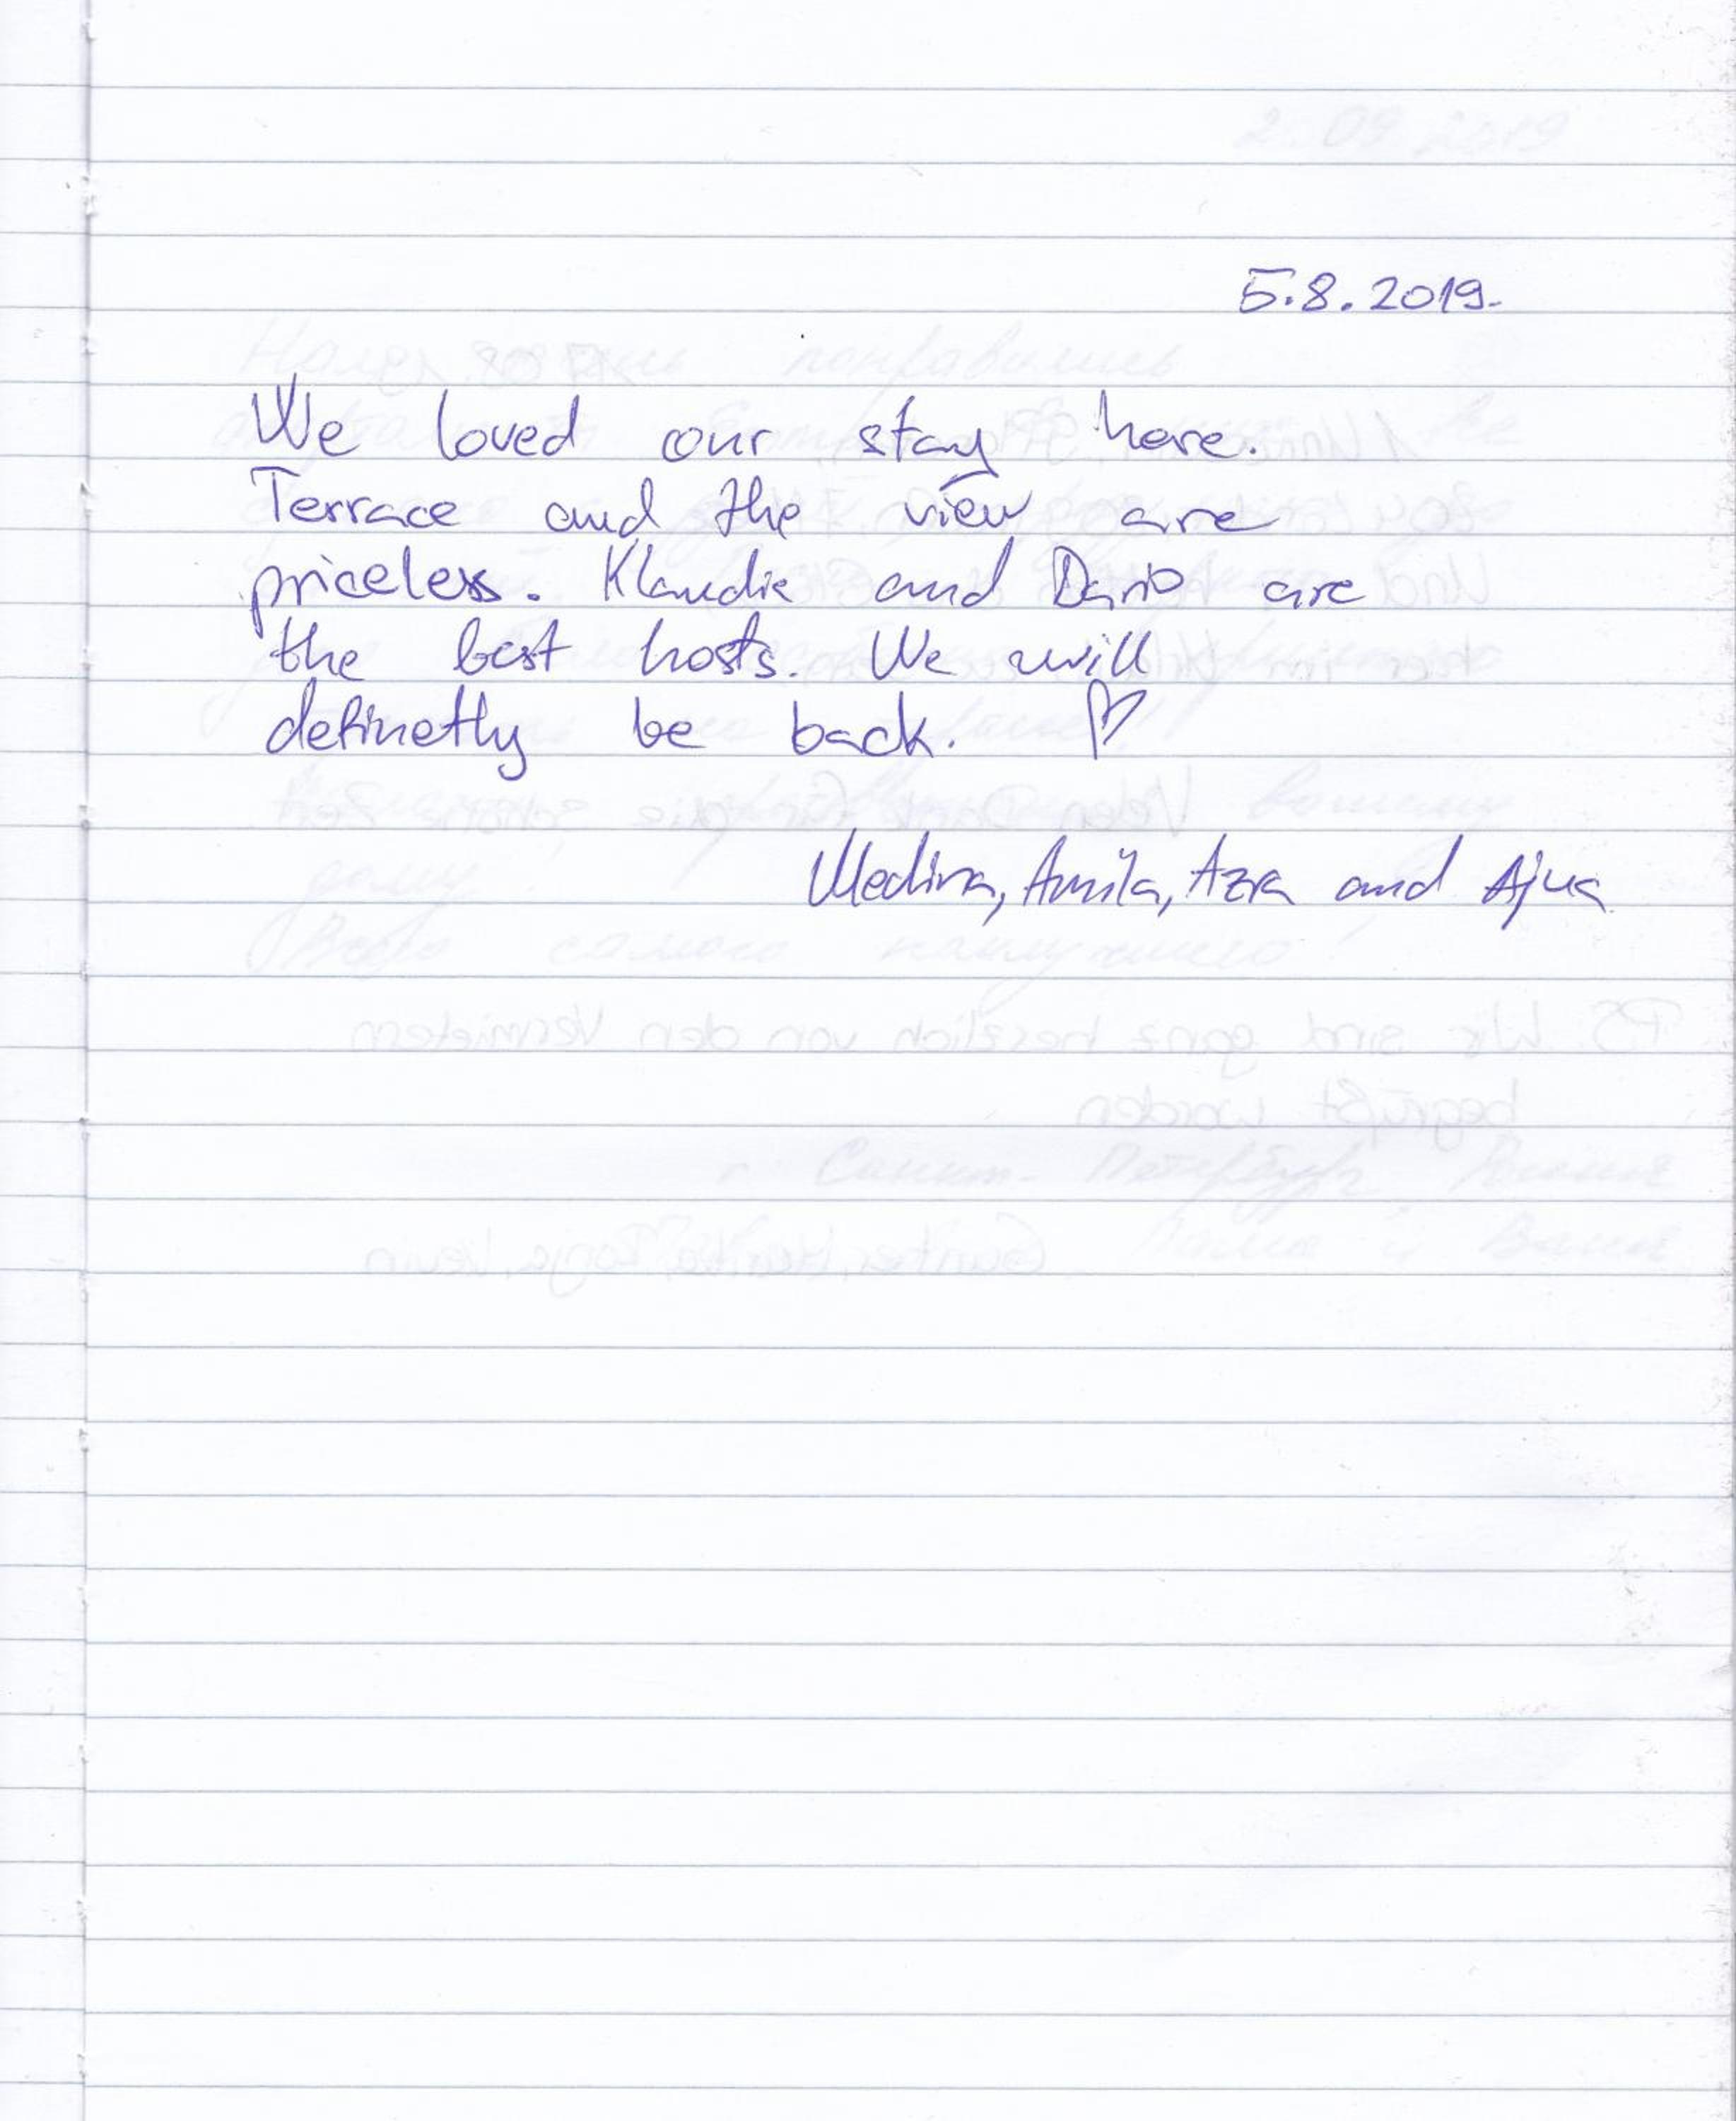 5.8.2019.
We loved our stay here.
Terrace and the view are
priceless. Klaudia and Dario are
the best hosts. We will
definetly be back. ♡
Medina, Amila, Azra and Ajna